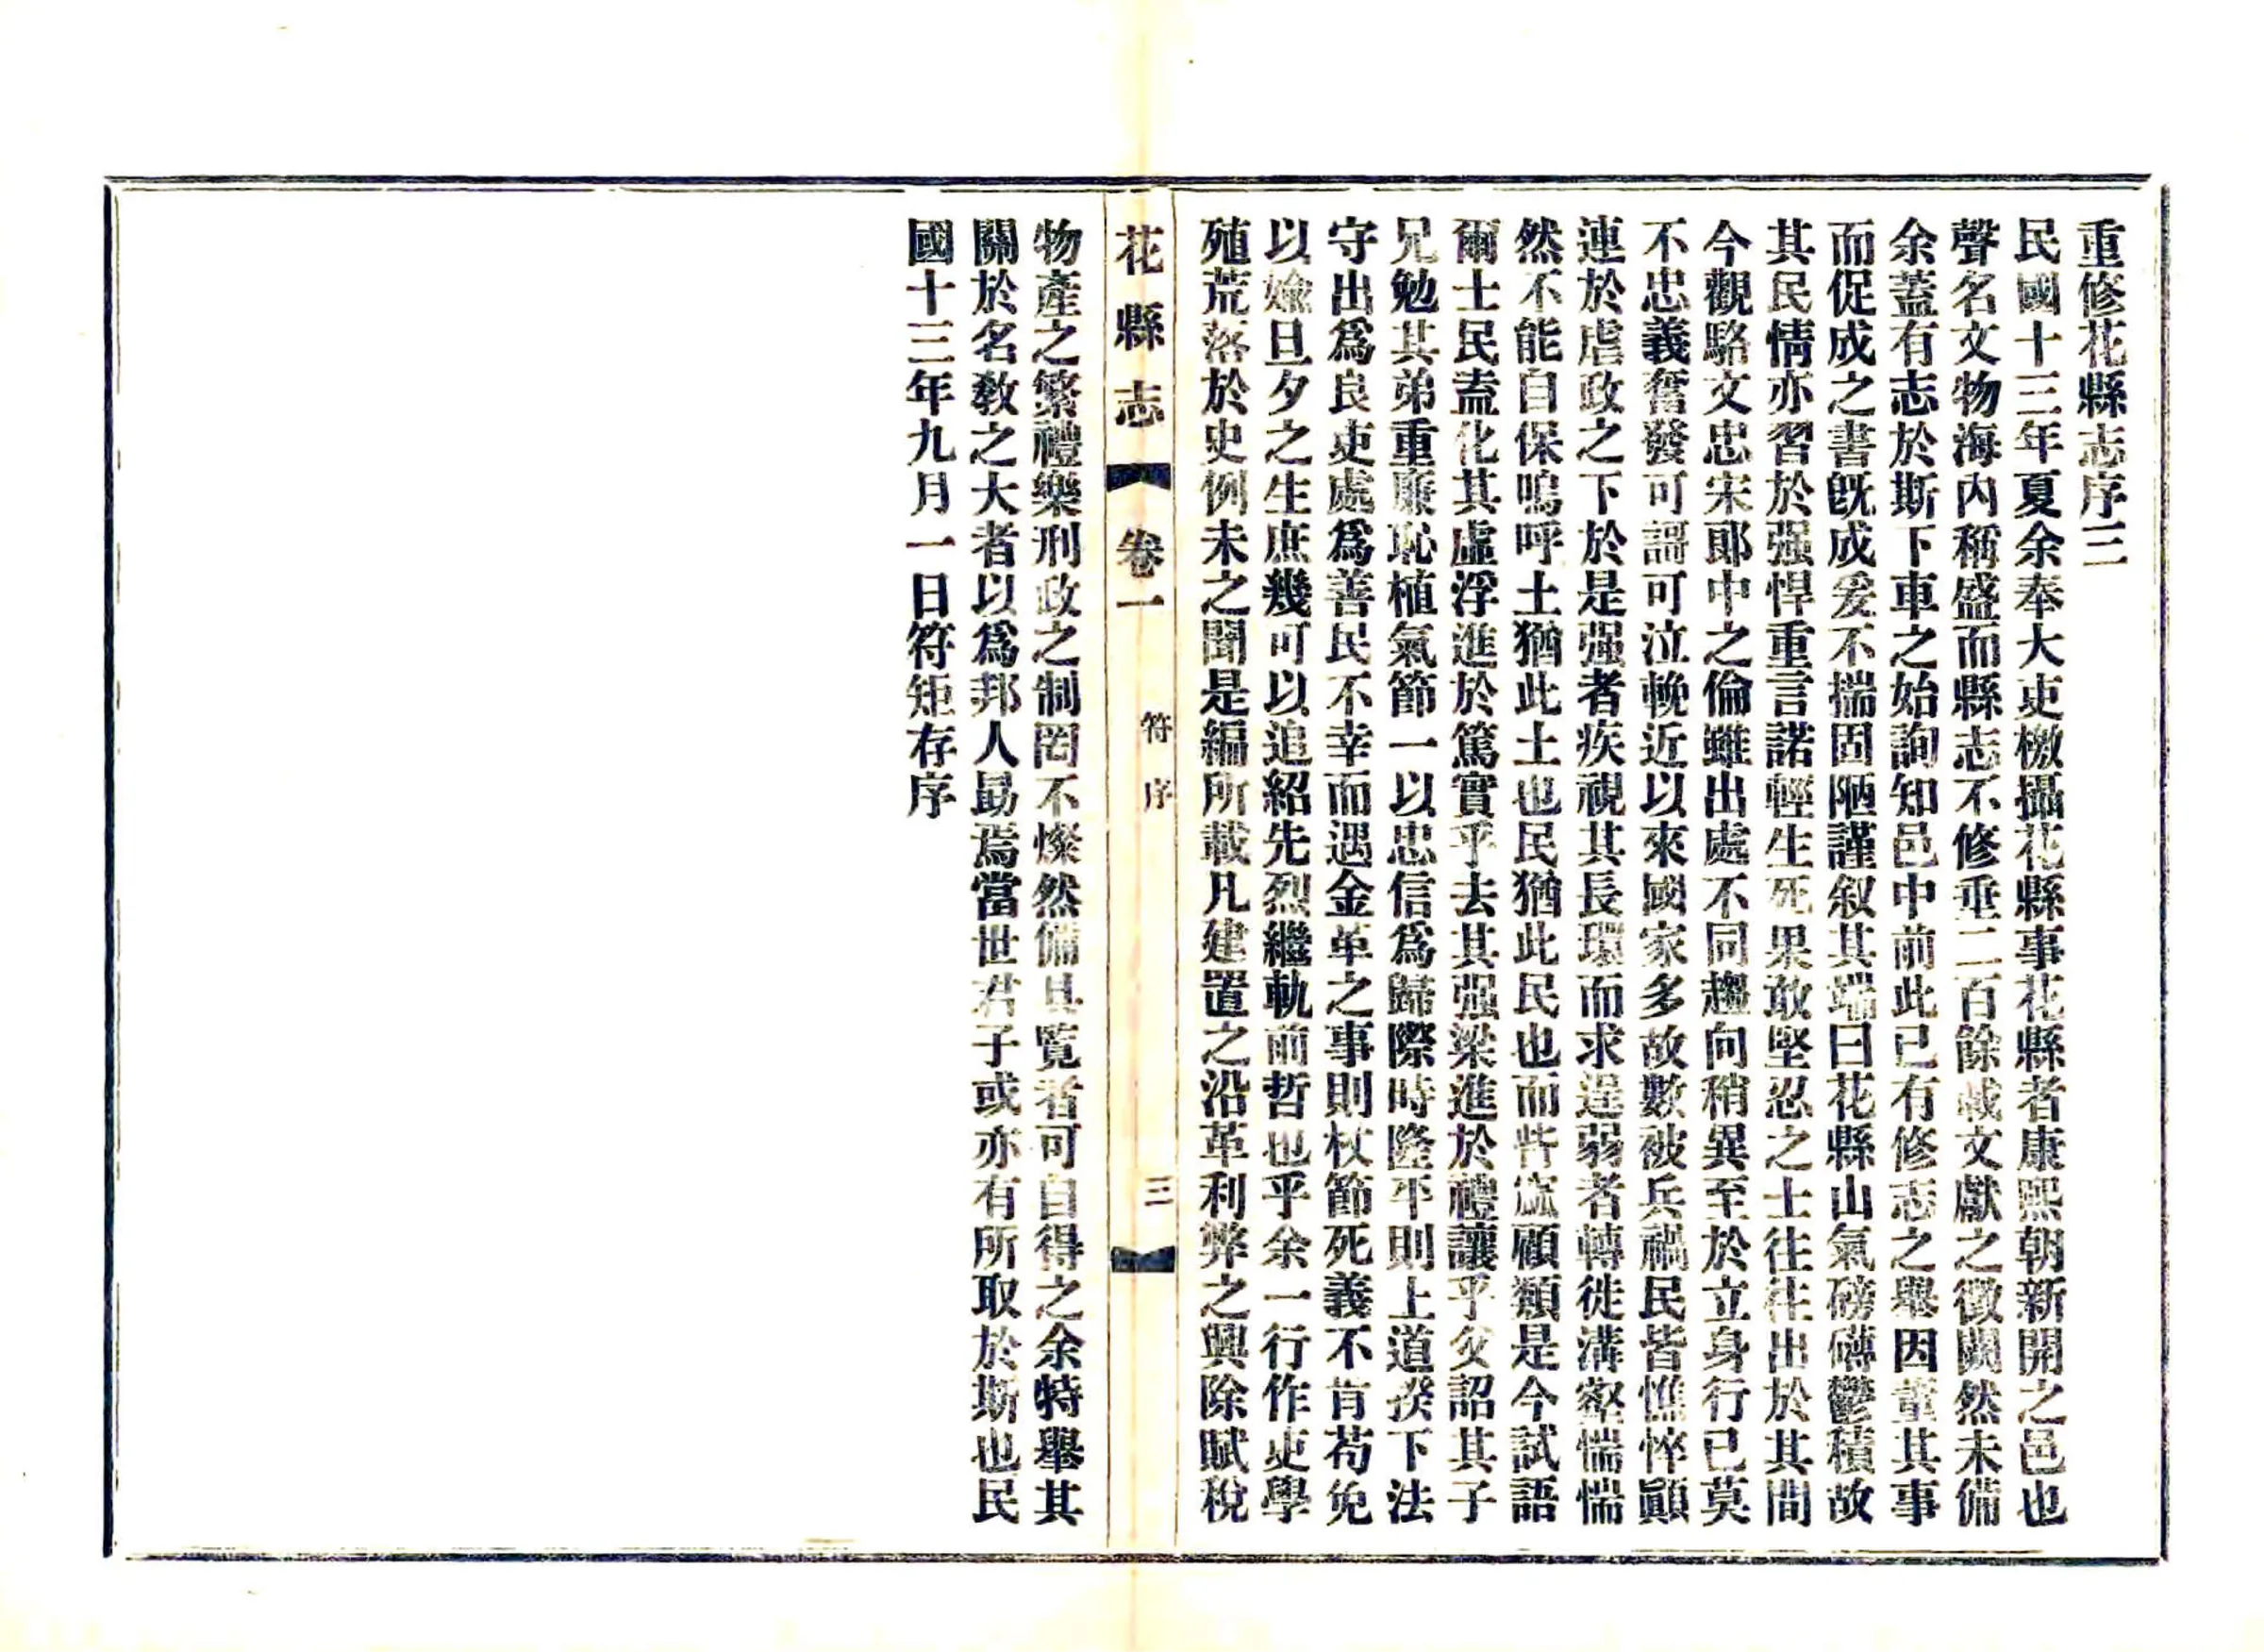 重修花縣志序三
民國十三年夏余奉大吏檄攝花縣事花縣者康熙朝新開之邑也
聲名文物海內稱盛而縣志不修垂二百餘載文獻之徵闕然未備
余蓋有志於斯下車之始詢知邑中前此已有修志之舉因董其事
而促成之書旣成爰不揣固陋謹叙其端曰花縣山氣磅礴鬱積故
其民情亦習於强悍重言諾輕生死果敢堅忍之士往往出於其間
今觀駱文忠宋郞中之倫雖出處不同趨向稍異至於立身行己莫
不忠義奮發可謌可泣輓近以來國家多故數被兵禍民皆憔悴顚
連於虐政之下於是强者疾視其長環而求逞弱者轉徙溝壑惴惴
然不能自保嗚呼土猶此土也民猶此民也而呰窳顧類是今試語
爾士民盍化其虛浮進於篤實乎去其强梁進於禮讓乎父詔其子
兄勉其弟重廉恥植氣節一以忠信爲歸際時隆平則上道揆下法
守出爲良吏處爲善民不幸而遇金革之事則杖節死義不肯苟免
以媮旦夕之生庶幾可以追紹先烈繼軌前哲也乎余一行作吏學
殖荒落於史例未之聞是編所載凡建置之沿革利弊之興除賦稅
花縣志 卷一 符序 三
物產之繁禮樂刑政之制罔不燦然備具覽者可自得之余特舉其
關於名敎之大者以爲邦人勗焉當世君子或亦有所取於斯也民
國十三年九月一日符矩存序